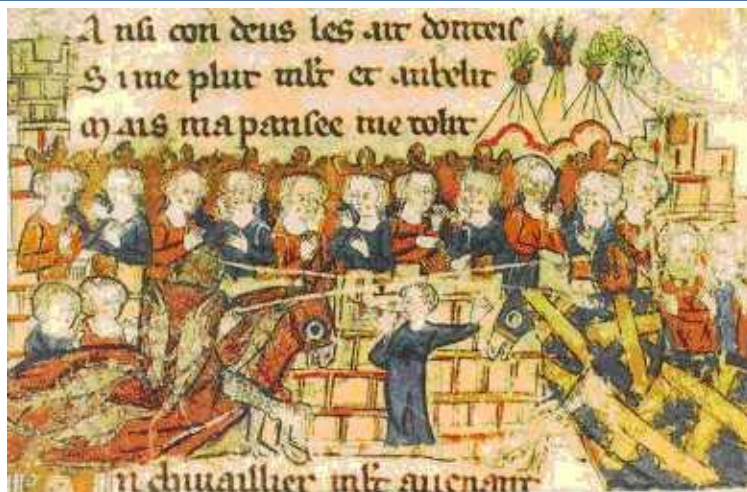 A nsi con deus les ait donteis
S i me plut mlt et anbelit
M ais ma pansee me tolit
chiuaillier mlt auenant